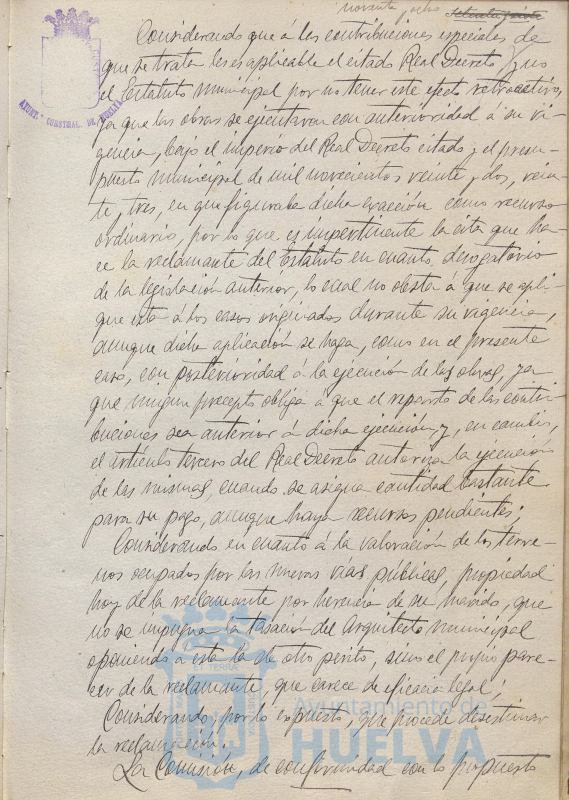 noventa y ocho
AYUNT. CONSTNAL. DE HUELVA
Considerando que á las contribuciones especiales de
que se trata les es aplicable el citado Real Decreto y no
el Estatuto municipal por no tener este efecto retroactivo,
ya que las obras se ejecutaron con anterioridad á su vi-
gencia, bajo el imperio del Real Decreto citado y el presu-
puesto municipal de mil novecientos veinte y dos, vein-
te y tres, en que figuraba dicha exacción como recurso
ordinario, por lo que es impertinente la cita que ha-
ce la reclamante del Estatuto en cuanto derogatorio
de la legislación anterior, lo cual no obsta á que se apli-
que esta á los casos originados durante su vigencia,
aunque dicha aplicación se haga, como en el presente
caso, con posterioridad á la ejecución de las obras, ya
que ningun precepto obliga á que el reparto de las contri-
buciones sea anterior á dicha ejecución y, en cambio,
el artículo tercero del Real Decreto autoriza la ejecución
de las mismas, cuando se asigna cantidad bastante
para su pago, aunque haya recursos pendientes;
Considerando en cuanto á la valoración de los terre-
nos ocupados por las nuevas vías públicas, propiedad
hoy de la reclamante por herencia de su marido, que
no se impugna la tasación del Arquitecto municipal
oponiendo á esta la de otro perito, sino el propio pare-
cer de la reclamante, que carece de eficacia legal;
Considerando, por lo expuesto, que procede desestimar
la reclamación;
La Comisión, de conformidad con lo propuesto
Ayuntamiento de
HUELVA